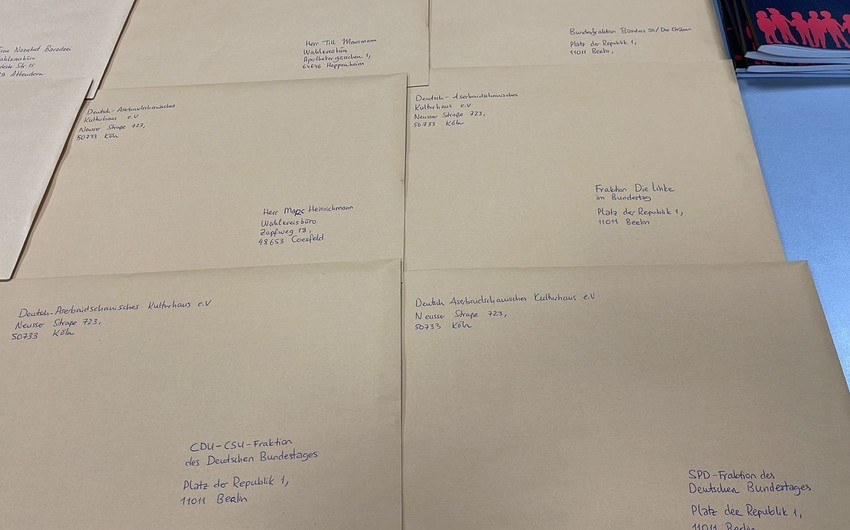 Straße 15
Attendorn
Herr Till Mansmann
Wahlkreisbüro
64646 Heppenheim
Bundesfraktion Bündnis 90/Die Grünen
Platz der Republik 1,
11011 Berlin,
Deutsch-Aserbaidschanisches
Kulturhaus e.V
Neusse Straße 723,
50733 Köln
Herr Marc Heinrichmann
Wahlkreisbüro
Zapfweg 18,
48653 Coesfeld
Deutsch-Aserbaidschanisches
Kulturhaus e.V
Neusser Straße 723,
50733 Köln
Fraktion Die Linke
im Bundestag
Platz der Republik 1,
11011 Berlin
Deutsch-Aserbaidschanisches Kulturhaus e.V
Neusse Straße 723,
50733 Köln
CDU-CSU-Fraktion
des Deutschen Bundestages
Platz der Republik 1,
11011 Berlin
Deutsch Aserbaidschanisches Kulturhaus e.V
Neusse Straße 723,
50733 Köln
SPD-Fraktion des
Deutschen Bundestages
Platz der Republik 1,
11011 Berlin